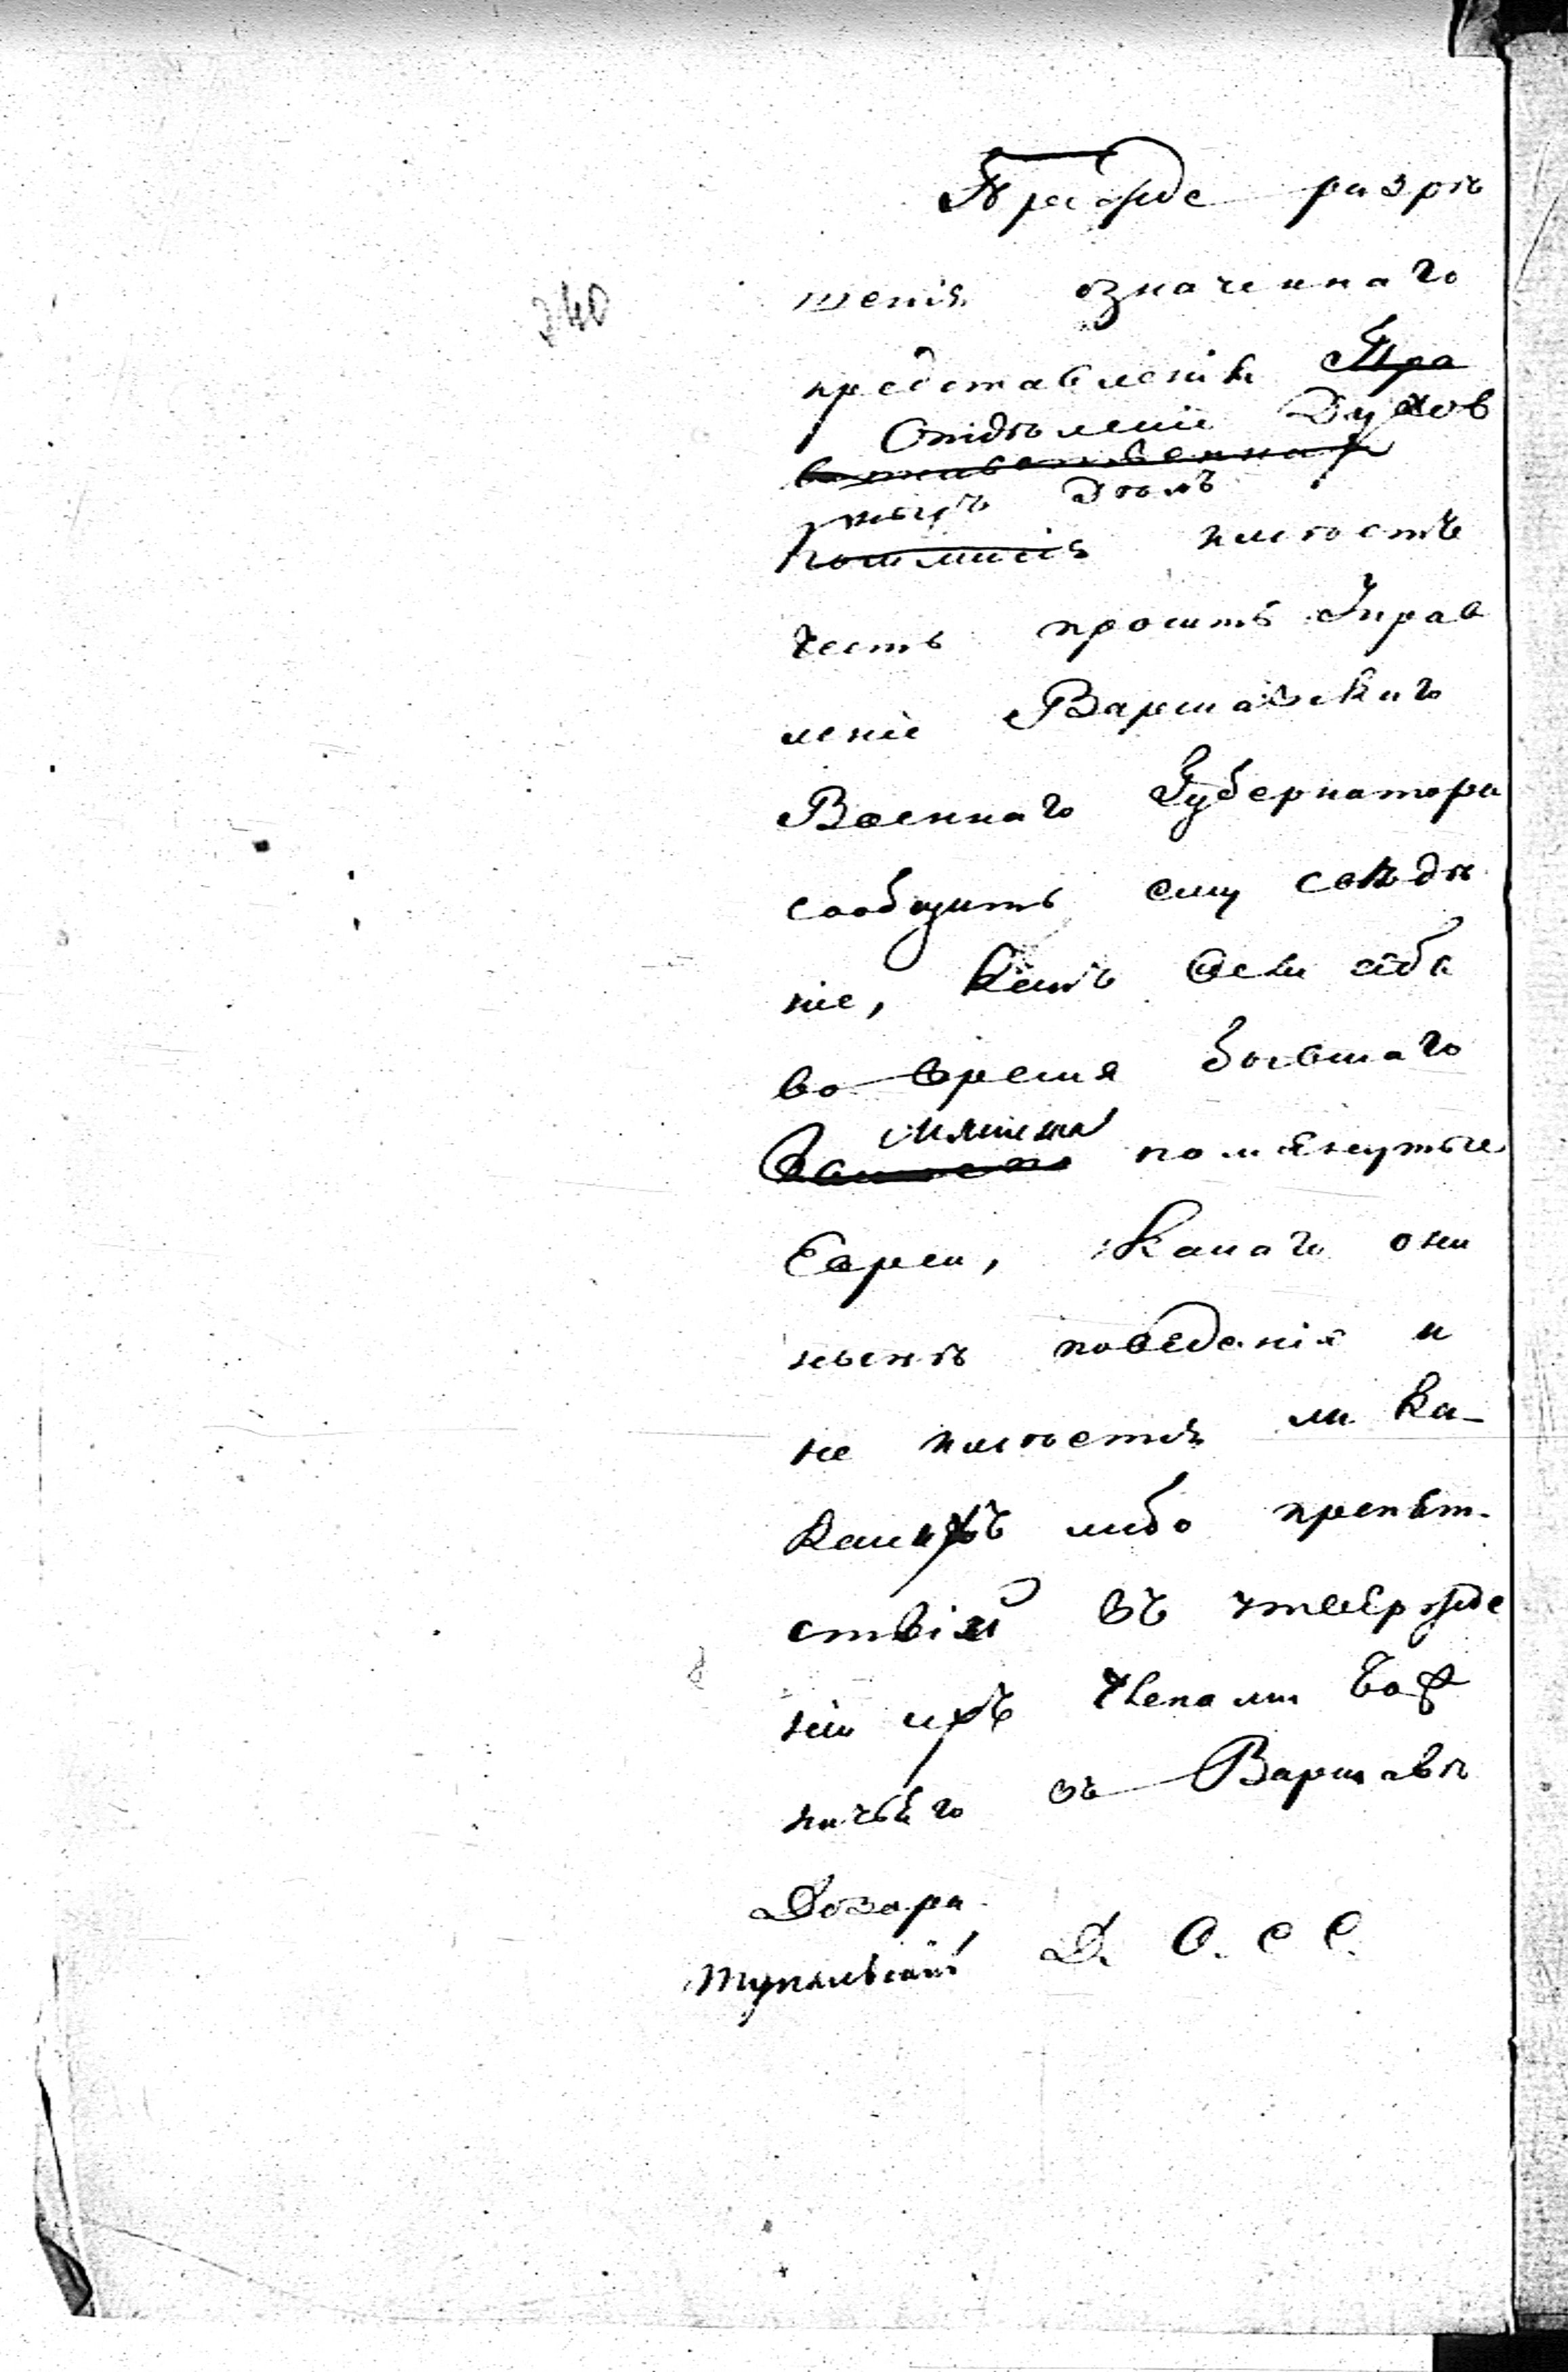 Прежде разрѣ
240
шенія означеннаго
представленія Пра
Отдѣленіе Духов
ныхъ Дѣлъ
имѣетъ
честь просить Управ
леніе Варшавскаго
Военнаго Губернатора
сообщить ему свѣдѣ
ніе, какъ вели себя
во время бывшаго
мятежа
помянутые
Евреи, какаго они
нынѣ поведенія и
не имѣетъ ли ка-
кихъ либо препят-
ствій въ утвержде
ніи ихъ членами Бож
ничьяго въ Варшавѣ
Дозора.
Д. О. С. С.